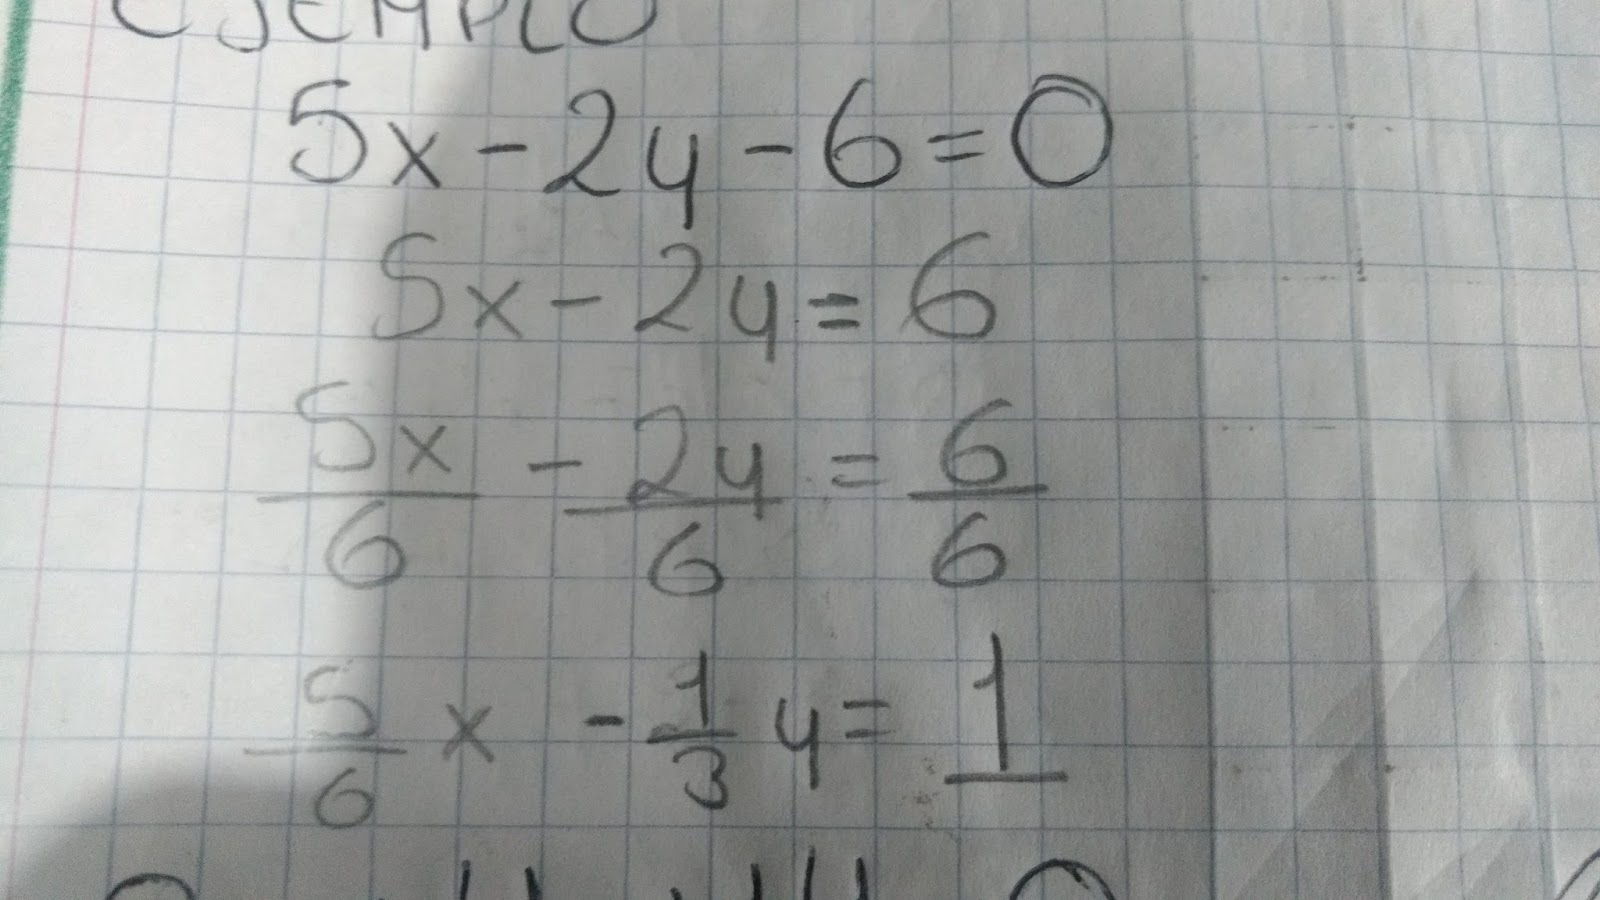 EJEMPLO
5x - 2y - 6 = 0
5x - 2y = 6
5x/6 - 2y/6 = 6/6
5/6 x - 1/3 y = 1